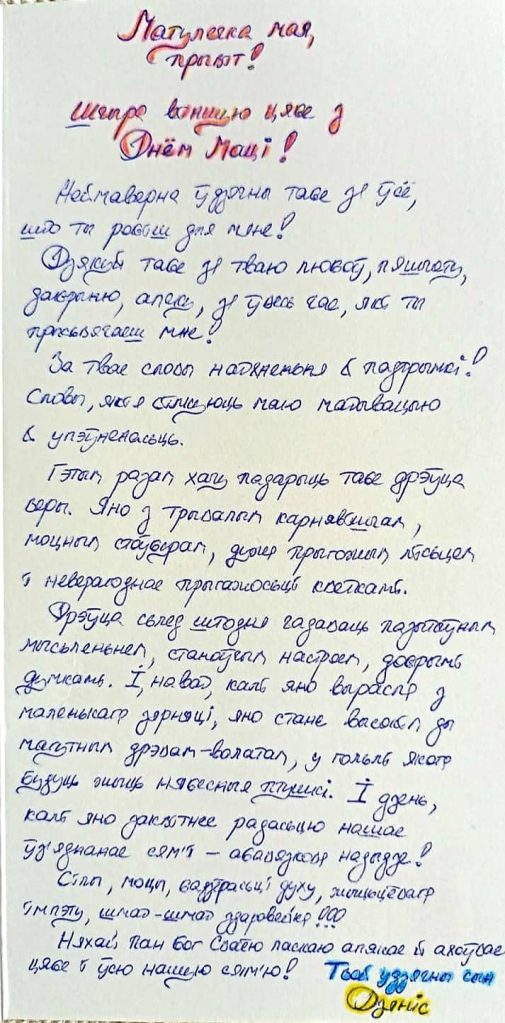 Матулечка мая,
прывіт!
Шчыра віншую цябе з
Днём Маці!
Неймаверна ўдзячны табе за ўсё,
што ты робіш для мяне!
Дзякуй табе за тваю любоў, пяшчоту,
дабрыню, апеку, за ўвесь час, які ты
прысьвячаеш мне!
За твае словы натхненьня й падтрымкі!
Словы, якія сілкуюць маю матывацыю
й упэўненасьць.
Гэтым разам хачу падарыць табе дрэўца
веры. Яно з трывалым карнявішчам,
моцным стаўбуром, дужа прыгожым лісьцем
і неверагоднае прыгажосьці кветкамі.
Дрэўца сьлед штодня гадаваць пазытыўным
мысьленьнем, станоўчым настроем, добрымі
думкамі. І, нават, калі яно вырасце з
маленькага зерняці, яно стане высокім ды
магутным дрэвам-волатам, у гольлі якога
будуць жыць нябесныя птушкі. І дзень,
калі яно заквітнее радасьцю нашае
ўз'яднанае сям'і – абавязкова надыдзе!
Сілы, моцы, бадзёрасьці духу, жыцьцёвага
імпэту, шмат-шмат здароўейка!!!
Няхай Пан Бог Сваёю ласкаю апякае й ахоўвае
цябе і ўсю нашую сям'ю! Твой удзячны сын
Дзяніс